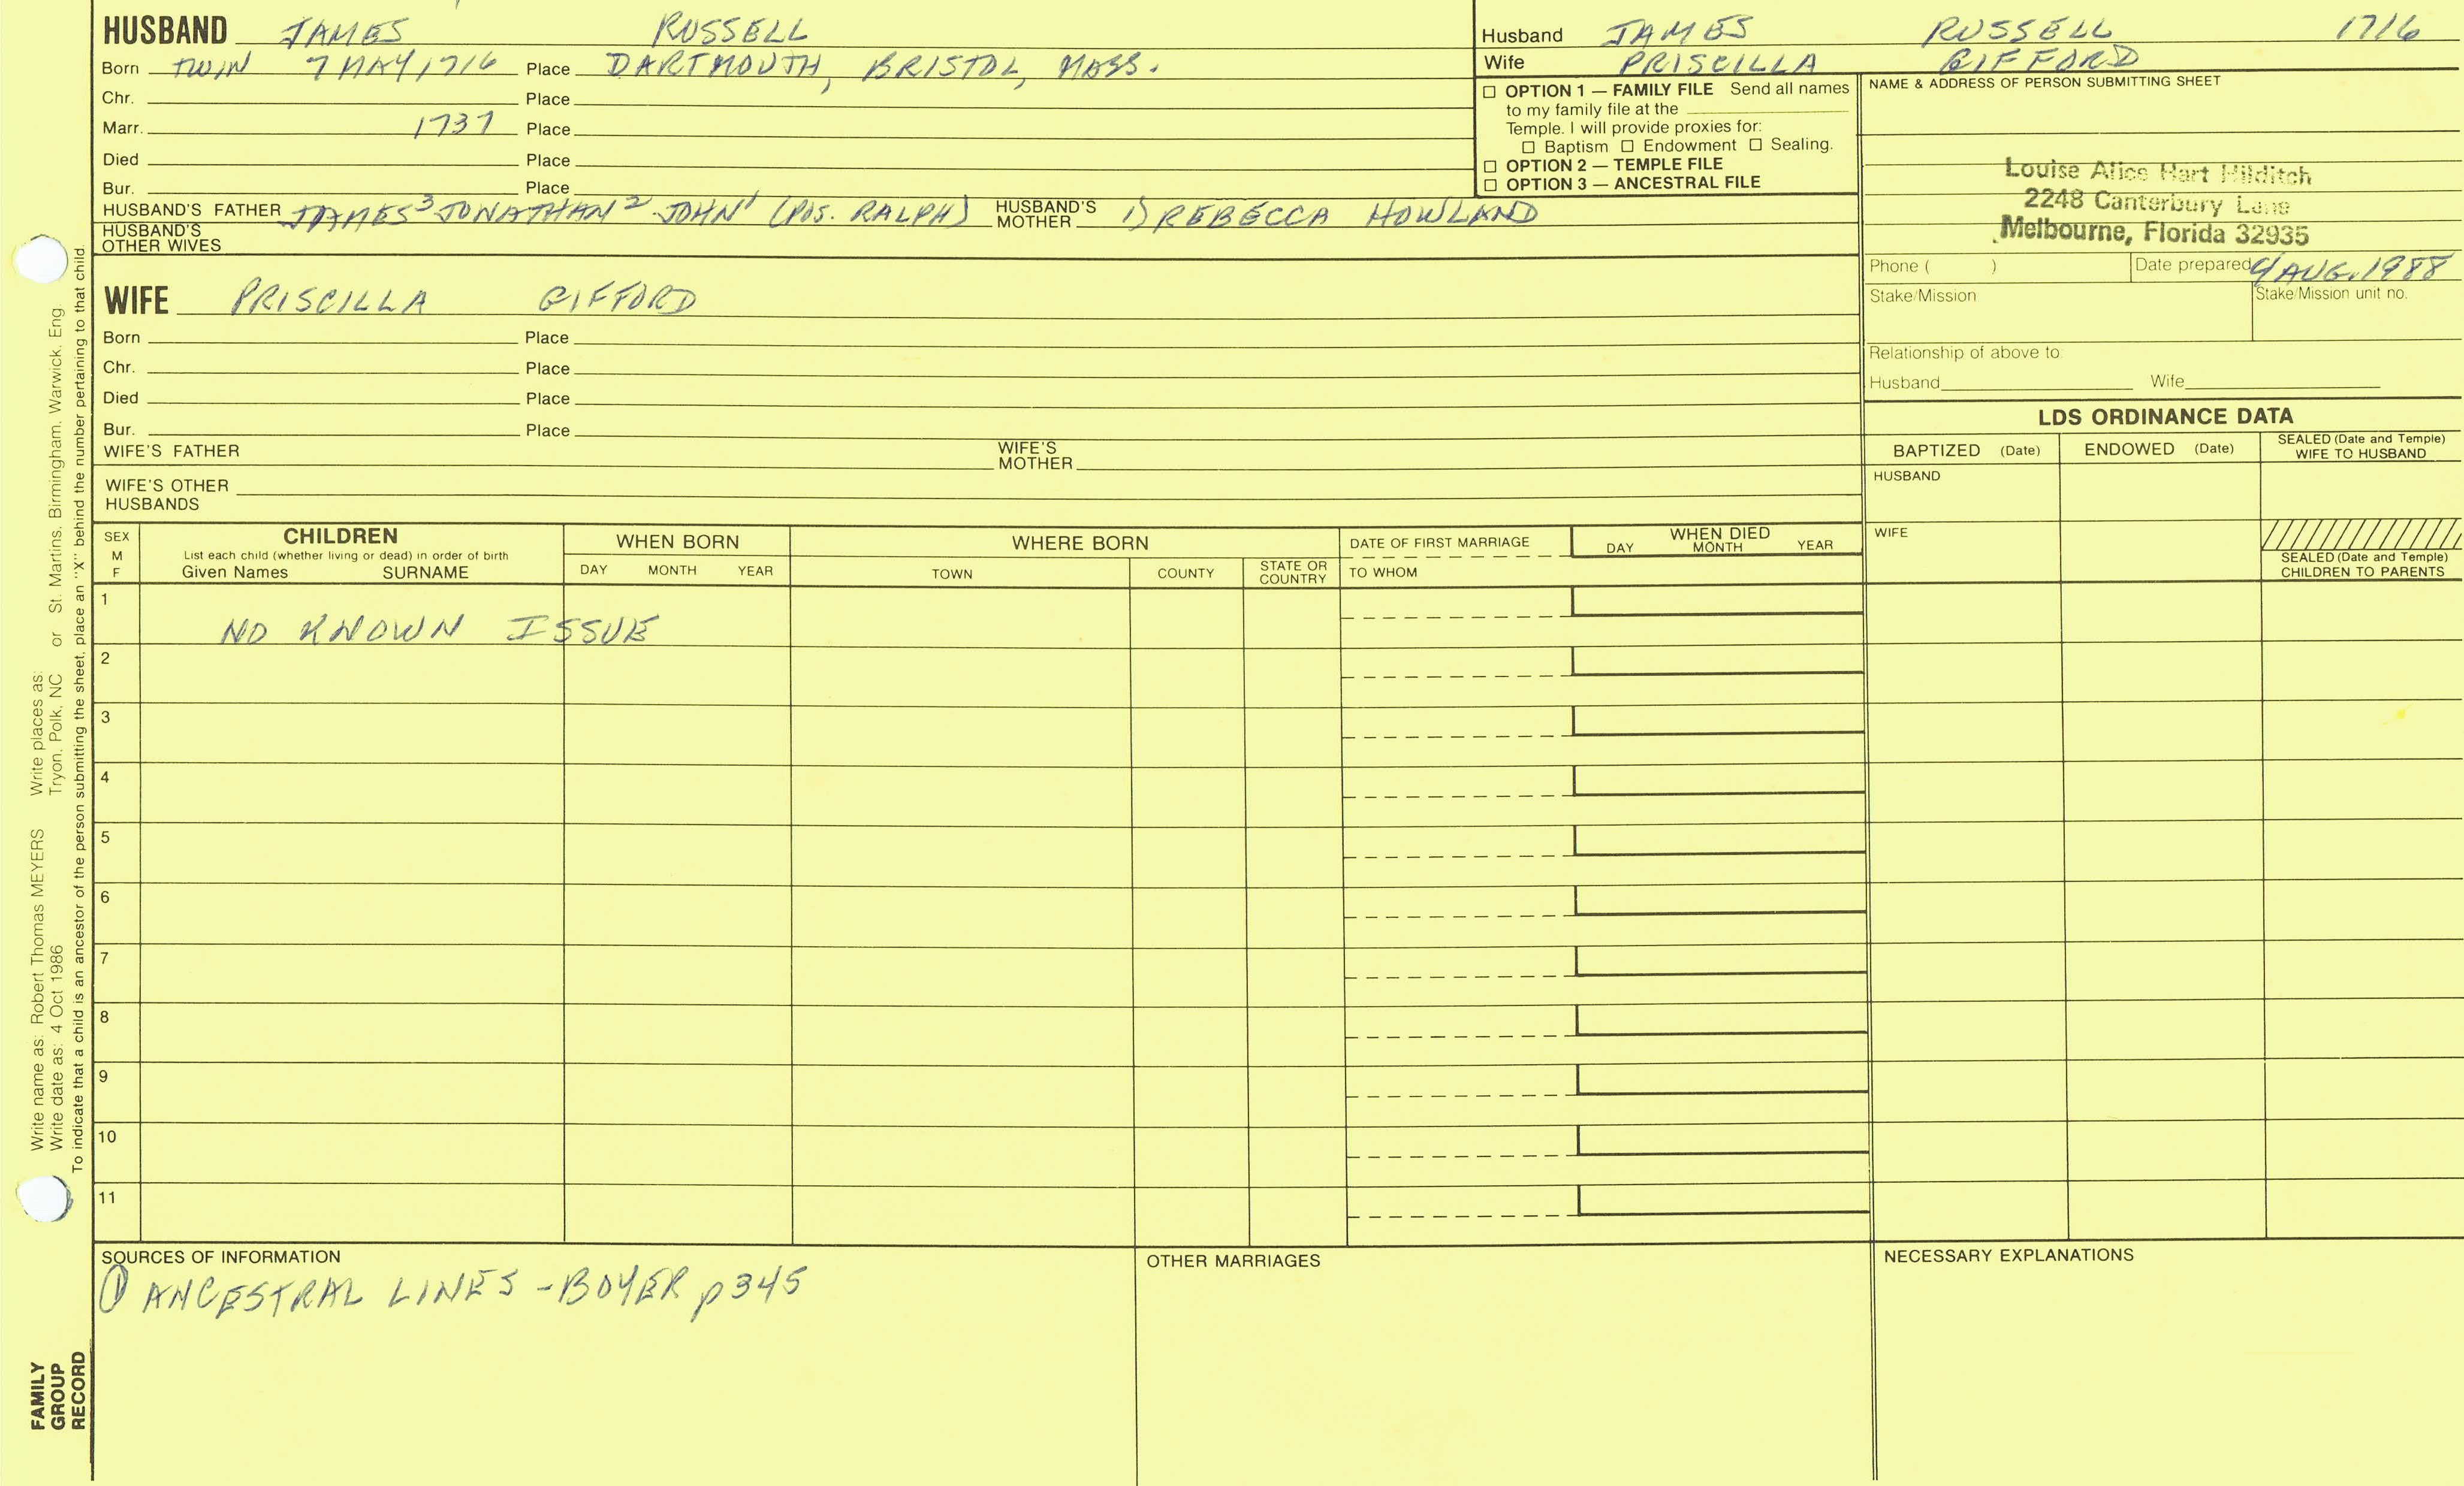 HUSBAND JAMES RUSSELL
Born TWIN 7 MAY 1716 Place DARTMOUTH, BRISTOL, MASS.
Chr. Place
Marr. 1737 Place
Died Place
Bur. Place
HUSBAND'S FATHER JAMES³ JONATHAN² JOHN¹ (POS. RALPH) HUSBAND'S MOTHER 1) REBECCA HOWLAND
HUSBAND'S OTHER WIVES
Husband JAMES RUSSELL 1716
Wife PRISCILLA GIFFORD
☐ OPTION 1 — FAMILY FILE Send all names
to my family file at the
Temple. I will provide proxies for:
☐ Baptism ☐ Endowment ☐ Sealing.
☐ OPTION 2 — TEMPLE FILE
☐ OPTION 3 — ANCESTRAL FILE
NAME & ADDRESS OF PERSON SUBMITTING SHEET
Louise Alice Hart Hilditch
2248 Canterbury Lane
Melbourne, Florida 32935
Phone ( ) Date prepared 4 AUG. 1988
Stake/Mission Stake/Mission unit no.
Relationship of above to:
Husband Wife
WIFE PRISCILLA GIFFORD
Born Place
Chr. Place
Died Place
Bur. Place
WIFE'S FATHER WIFE'S MOTHER
WIFE'S OTHER
HUSBANDS
LDS ORDINANCE DATA
BAPTIZED (Date) ENDOWED (Date) SEALED (Date and Temple) WIFE TO HUSBAND
HUSBAND
WIFE
SEALED (Date and Temple)
CHILDREN TO PARENTS
SEX
M
F
CHILDREN
List each child (whether living or dead) in order of birth
Given Names SURNAME
WHEN BORN
DAY MONTH YEAR
WHERE BORN
TOWN COUNTY STATE OR COUNTRY
DATE OF FIRST MARRIAGE
TO WHOM
WHEN DIED
DAY MONTH YEAR
1 NO KNOWN ISSUE
2
3
4
5
6
7
8
9
10
11
SOURCES OF INFORMATION
① ANCESTRAL LINES - BOYER p345
OTHER MARRIAGES
NECESSARY EXPLANATIONS
Write name as: Robert Thomas MEYERS Write places as:
Write date as: 4 Oct 1986 Tryon, Polk, NC or St. Martins, Birmingham, Warwick, Eng.
To indicate that a child is an ancestor of the person submitting the sheet, place an "X" behind the number pertaining to that child.
FAMILY
GROUP
RECORD